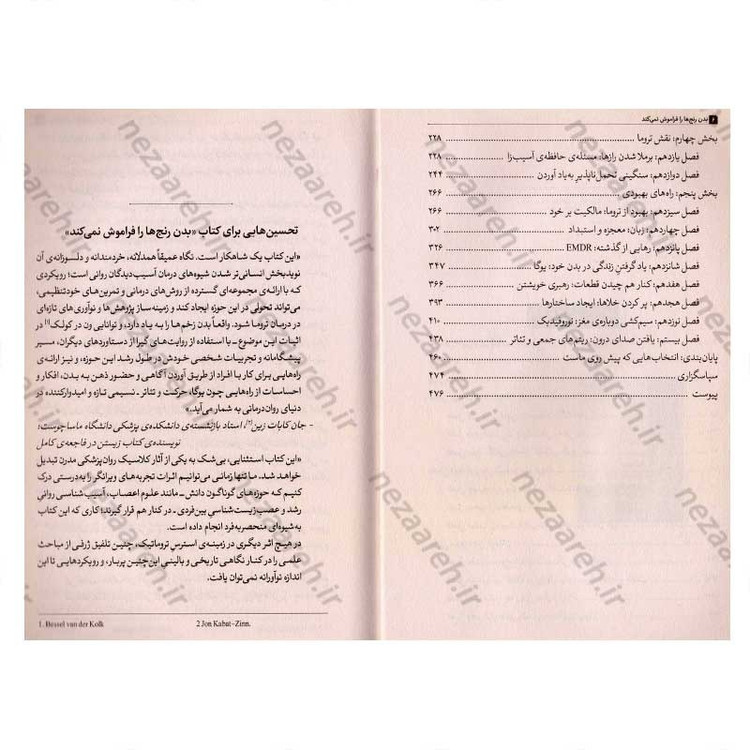 ۶ بدن رنج‌ها را فراموش نمی‌کند
بخش چهارم: نقش تروما ۲۲۸
فصل یازدهم: برملا شدن رازها: مسئله‌ی حافظه‌ی آسیب‌زا ۲۲۸
فصل دوازدهم: سنگینی تحمل‌ناپذیرِ به‌یاد آوردن ۲۴۴
بخش پنجم: راه‌های بهبودی ۲۶۶
فصل سیزدهم: بهبود از تروما: مالکیت بر خود ۲۶۶
فصل چهاردهم: زبان: معجزه و استبداد ۳۰۲
فصل پانزدهم: رهایی از گذشته: EMDR ۳۲۶
فصل شانزدهم: یاد گرفتنِ زندگی در بدن خود: یوگا ۳۴۷
فصل هفدهم: کنار هم چیدن قطعات: رهبری خویشتن ۳۶۶
فصل هجدهم: پر کردن خلاها: ایجاد ساختارها ۳۹۳
فصل نوزدهم: سیم‌کشی دوباره‌ی مغز: نوروفیدبک ۴۱۰
فصل بیستم: یافتن صدای درون: ریتم‌های جمعی و تئاتر ۴۳۸
پایان‌بندی: انتخاب‌هایی که پیش روی ماست ۴۶۰
سپاسگزاری ۴۷۴
پیوست ۴۷۶
تحسین‌هایی برای کتاب «بدن رنج‌ها را فراموش نمی‌کند»
«این کتاب یک شاهکار است. نگاه عمیقاً همدلانه، خردمندانه و دلسوزانه‌ی آن
نویدبخش انسانی‌تر شدن شیوه‌های درمان آسیب‌دیدگان روانی است؛ رویکردی
که با ارائه‌ی مجموعه‌ای گسترده از روش‌های درمانی و تمرین‌های خودتنظیمی،
می‌تواند تحولی در این حوزه ایجاد کند و زمینه‌ساز پژوهش‌ها و نوآوری‌های تازه‌ای
در درمان تروما شود. واقعاً بدن زخم‌ها را به یاد دارد، و توانایی ون در کولک[۱] در
اثبات این موضوع ـ با استفاده از روایت‌های گیرا از دستاوردهای دیگران، مسیر
پیشگامانه و تجربیات شخصی خودش در طول رشد این حوزه، و نیز ارائه‌ی
راه‌هایی برای کار با افراد از طریق آوردن آگاهی و حضور ذهن به بدن، افکار و
احساسات از راه‌هایی چون یوگا، حرکت و تئاتر ـ نسیمی تازه و امیدوارکننده در
دنیای روان‌درمانی به شمار می‌آید.»
- جان کابات زین[۲]، استاد بازنشسته‌ی دانشکده‌ی پزشکی دانشگاه ماساچوست؛
نویسنده‌ی کتاب زیستن در فاجعه‌ی کامل
«این کتاب استثنایی، بی‌شک به یکی از آثار کلاسیک روان‌پزشکی مدرن تبدیل
خواهد شد. ما تنها زمانی می‌توانیم اثرات تجربه‌های ویرانگر را به‌درستی درک
کنیم که حوزه‌های گوناگون دانش ـ مانند علوم اعصاب، آسیب‌شناسی روانی
رشد و عصب‌زیست‌شناسی بین‌فردی ـ در کنار هم قرار گیرند؛ کاری که این کتاب
به شیوه‌ای منحصربه‌فرد انجام داده است.
در هیچ اثر دیگری در زمینه‌ی استرس تروماتیک، چنین تلفیق ژرفی از مباحث
علمی را در کنار نگاهی تاریخی و بالینی این‌چنین پربار، و رویکردهایی تا این
اندازه نوآورانه نمی‌توان یافت.
1. Bessel van der Kolk
2 Jon Kabat-Zinn.
nezaareh.ir